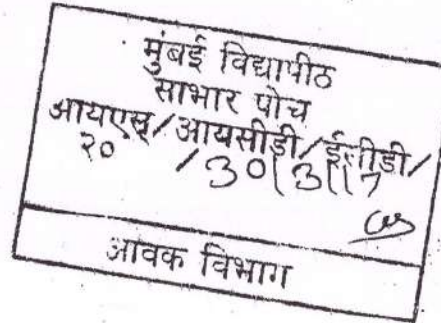 मुंबई विद्यापीठ
साभार पोच
आयएस/आयसीडी/ईसीडी/
२० /30/3/17
आवक विभाग